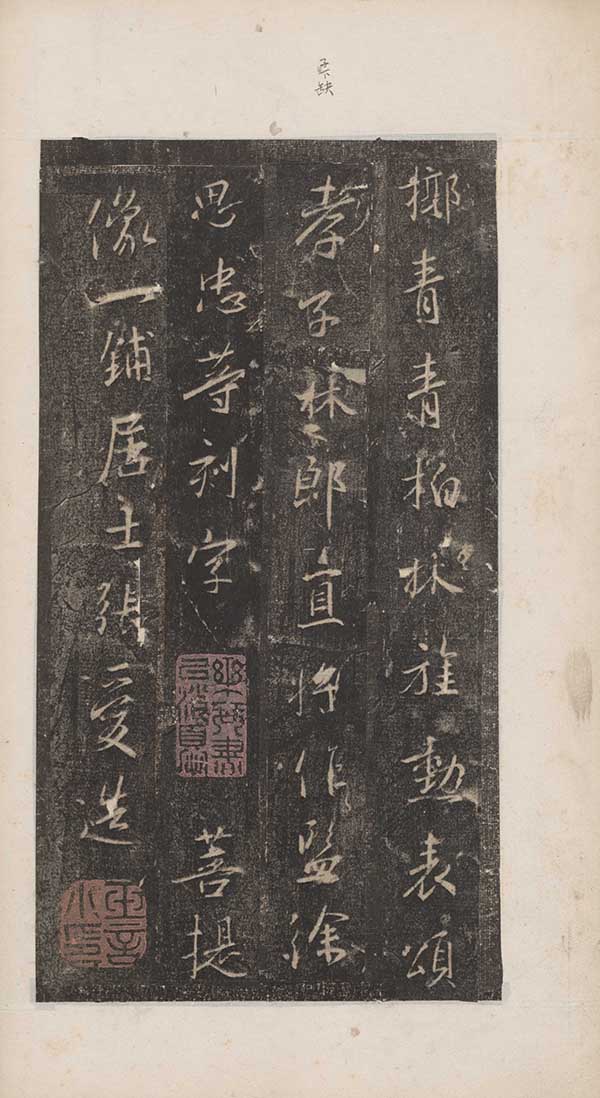 子下缺
槨青青柏林旌勳表頌
孝子林郎直將作監徐
思忠等刻字 菩提
像一鋪居士張愛造